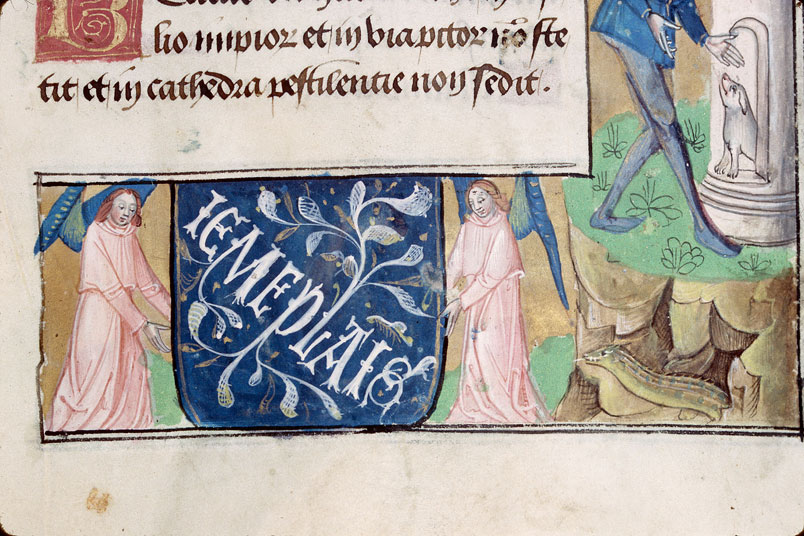 B
lio impior et in via pctor nō ste
tit et in cathedra pestilentie non sedit.
IEMEPLAIS